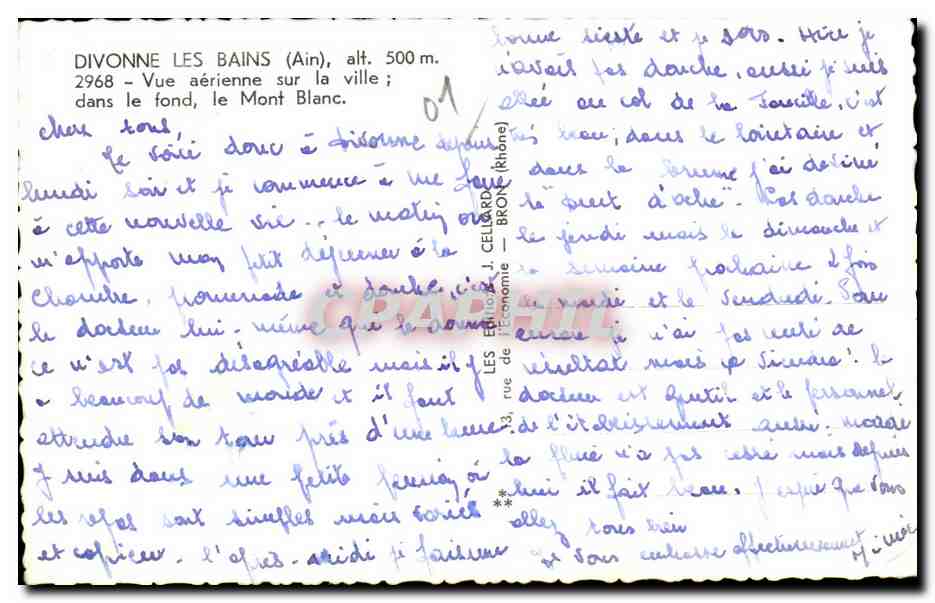 DIVONNE LES BAINS (Ain), alt. 500 m.
2968 - Vue aérienne sur la ville ;
dans le fond, le Mont Blanc.
01
Chers tous,
Me voici donc à Divonne depuis
lundi soir et je commence à me faire
à cette nouvelle vie.. le matin on
m'apporte mon petit déjeuner à la
chambre, promenade et douche, c'est
le docteur lui-même que la donne
ce n'est pas désagréable mais il y
a beaucoup de monde et il faut
attendre son tour près d'une heure.
Je suis dans une petite pension où
les repas sont simples mais variés
et copieux. l'après-midi je fais une
bonne sieste et je sors. Hier je
n'avais pas douche, aussi je suis
allée au col de la Faucille, c'est
très beau; dans le lointain et
dans la brume j'ai deviné
la "Dent d'Oche". Pas douche
le jeudi mais le dimanche et
la semaine prochaine 2 fois
le mardi et le vendredi. Pour
je n'ai pas senti de
résultat mais ça viendra! le
docteur est gentil et le personnel
de l'établissement aussi.
la pluie n'a pas cessé mais depuis
hier il fait beau. J'espère que vous
allez tous bien
Je vous embrasse affectueusement
LES Editions J. CELLARD
13, rue de l'Economie — BRON (Rhône)
CPAPHIL